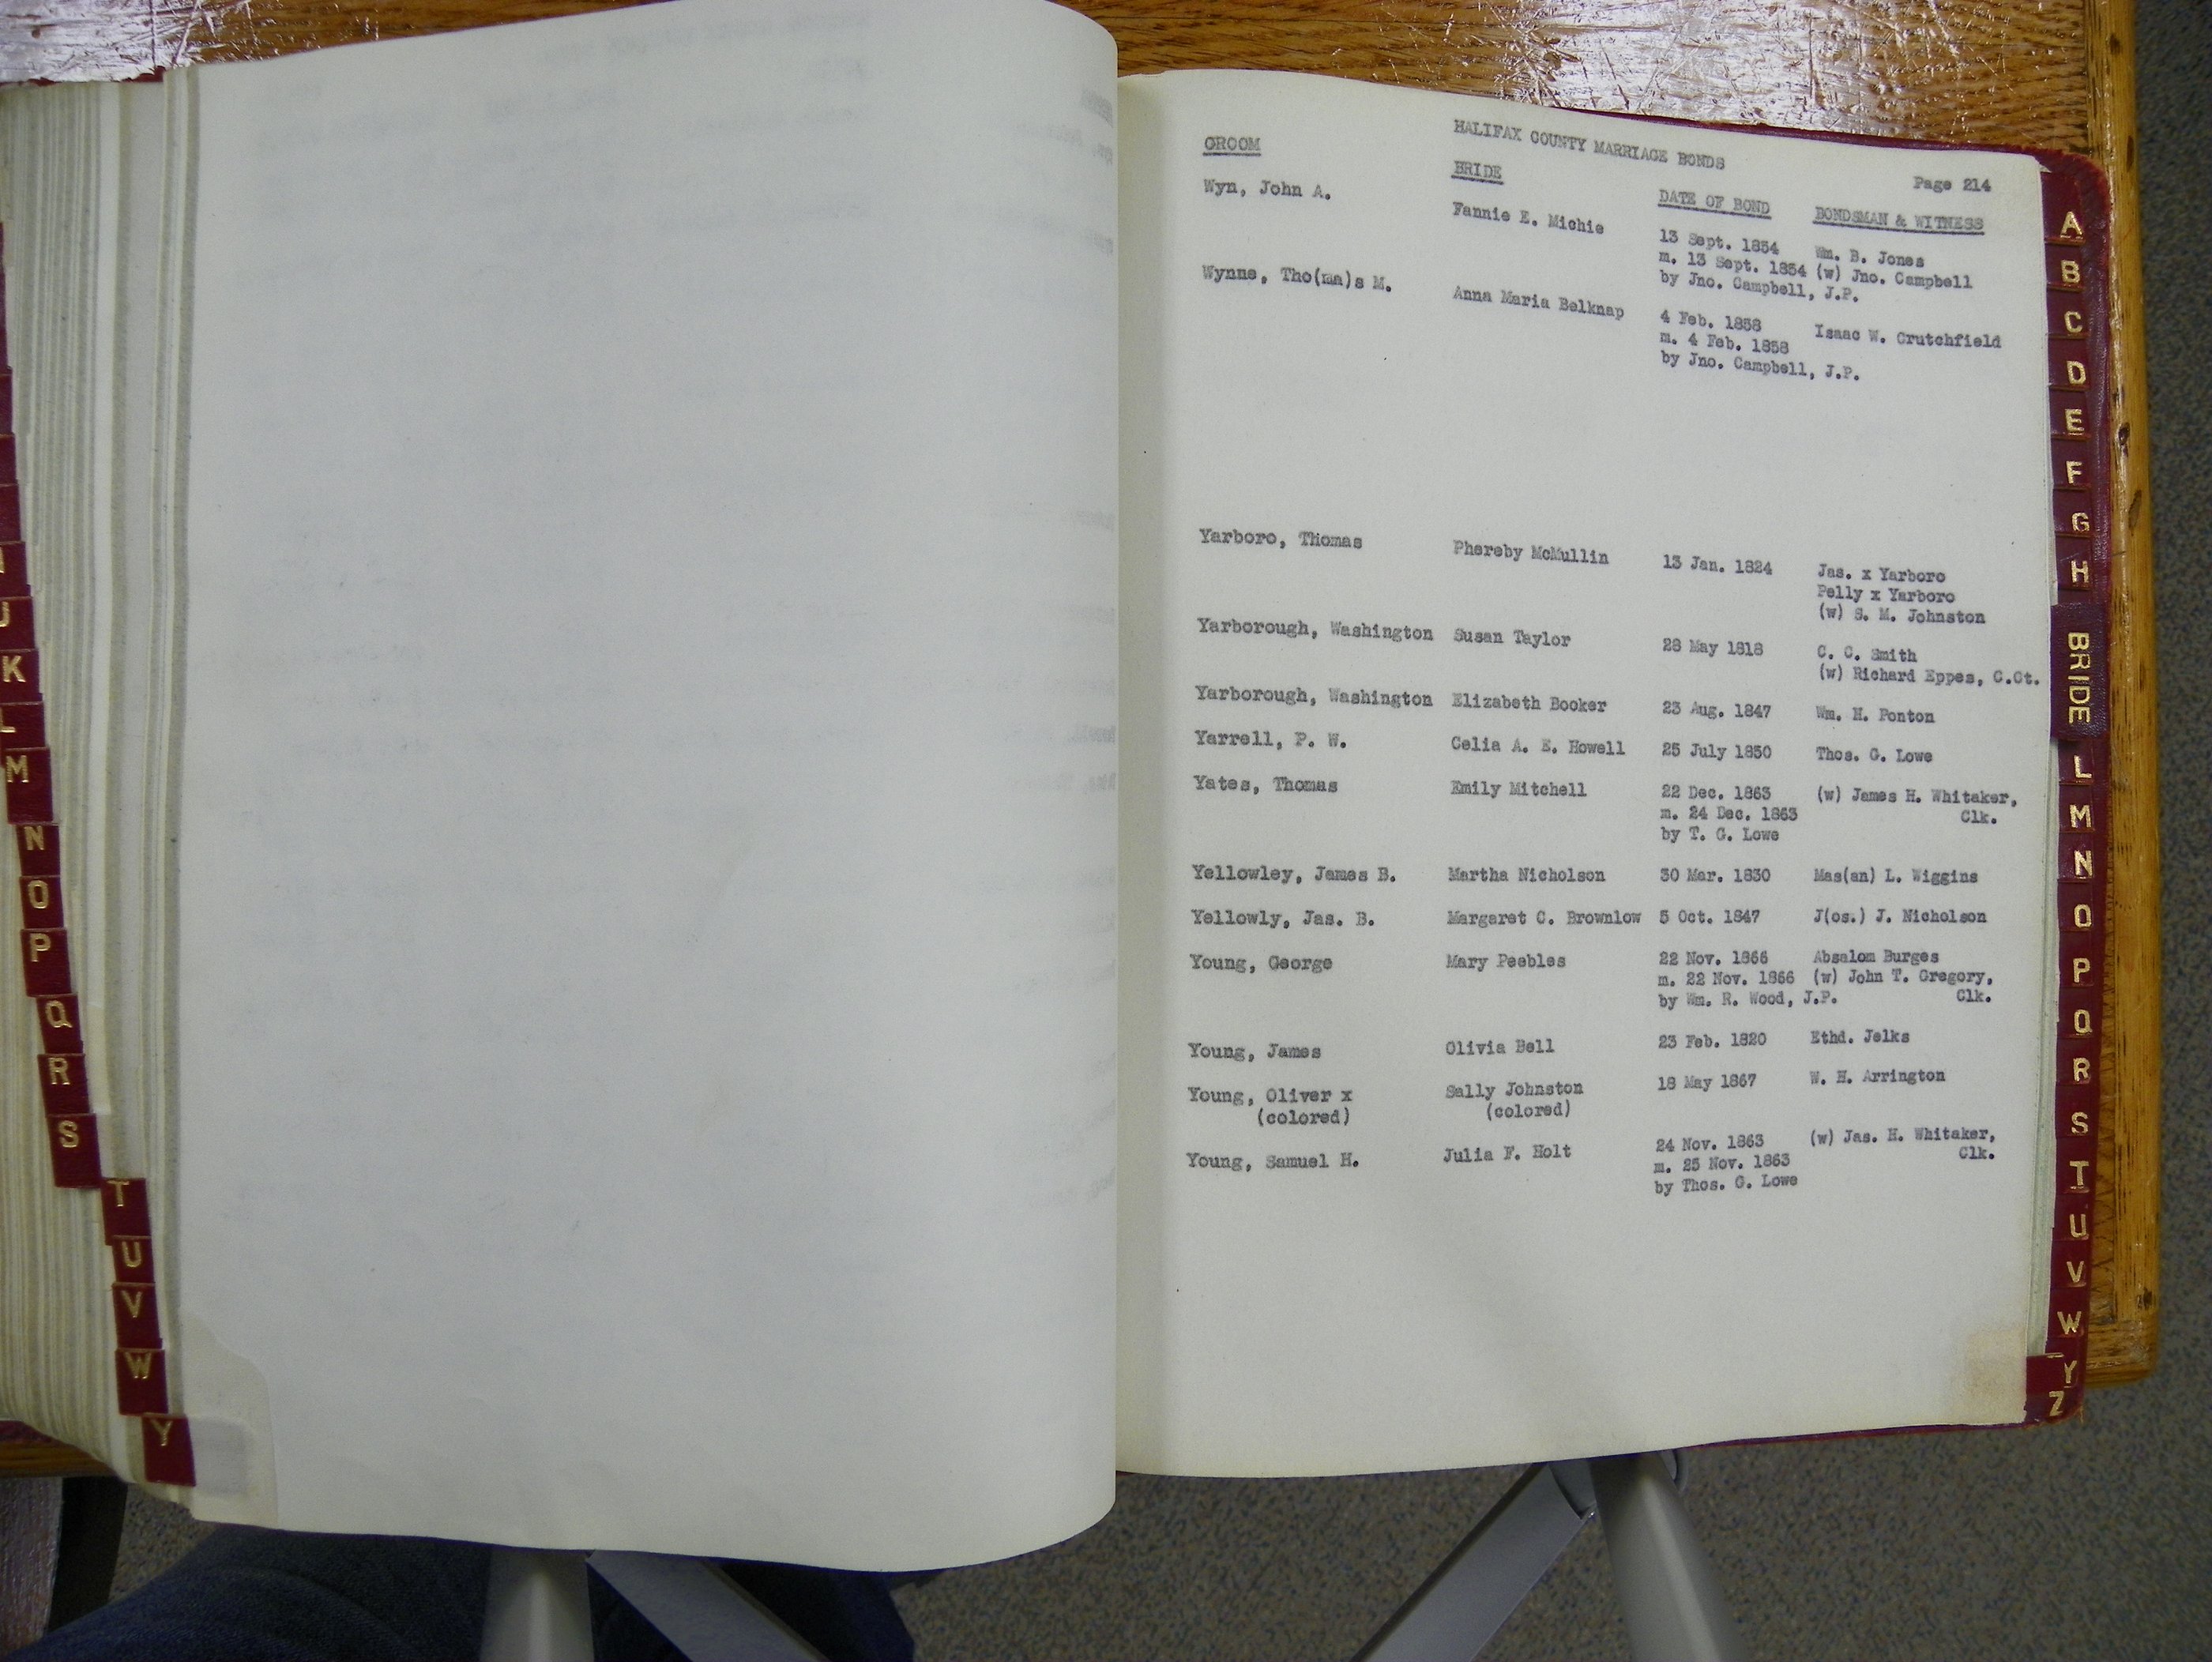 HALIFAX COUNTY MARRIAGE BONDS
Page 214
GROOM BRIDE DATE OF BOND BONDSMAN & WITNESS
Wyn, John A. Fannie E. Michie 13 Sept. 1854 Wm. B. Jones
m. 13 Sept. 1854 (w) Jno. Campbell
by Jno. Campbell, J.P.
Wynne, Tho(ma)s M. Anna Maria Belknap 4 Feb. 1858 Isaac W. Crutchfield
m. 4 Feb. 1858
by Jno. Campbell, J.P.
Yarboro, Thomas Phereby McMullin 13 Jan. 1824 Jas. x Yarboro
Pelly x Yarboro
(w) S. M. Johnston
Yarborough, Washington Susan Taylor 28 May 1818 C. C. Smith
(w) Richard Eppes, C.Ct.
Yarborough, Washington Elizabeth Booker 23 Aug. 1847 Wm. H. Ponton
Yarrell, P. W. Celia A. E. Howell 25 July 1850 Thos. G. Lowe
Yates, Thomas Emily Mitchell 22 Dec. 1863 (w) James H. Whitaker,
m. 24 Dec. 1863 Clk.
by T. G. Lowe
Yellowley, James B. Martha Nicholson 30 Mar. 1830 Mas(an) L. Wiggins
Yellowly, Jas. B. Margaret C. Brownlow 5 Oct. 1847 J(os.) J. Nicholson
Young, George Mary Peebles 22 Nov. 1866 Absalom Burges
m. 22 Nov. 1866 (w) John T. Gregory,
by Wm. R. Wood, J.P. Clk.
Young, James Olivia Bell 23 Feb. 1820 Ethd. Jelks
Young, Oliver x Sally Johnston 18 May 1867 W. H. Arrington
(colored) (colored)
Young, Samuel H. Julia F. Holt 24 Nov. 1863 (w) Jas. H. Whitaker,
m. 25 Nov. 1863 Clk.
by Thos. G. Lowe
A
B
C
D
E
F
G
H
BRIDE
L
M
N
O
P
Q
R
S
T
U
V
W
Y
Z
J
K
L
M
N
O
P
Q
R
S
T
U
V
W
Y